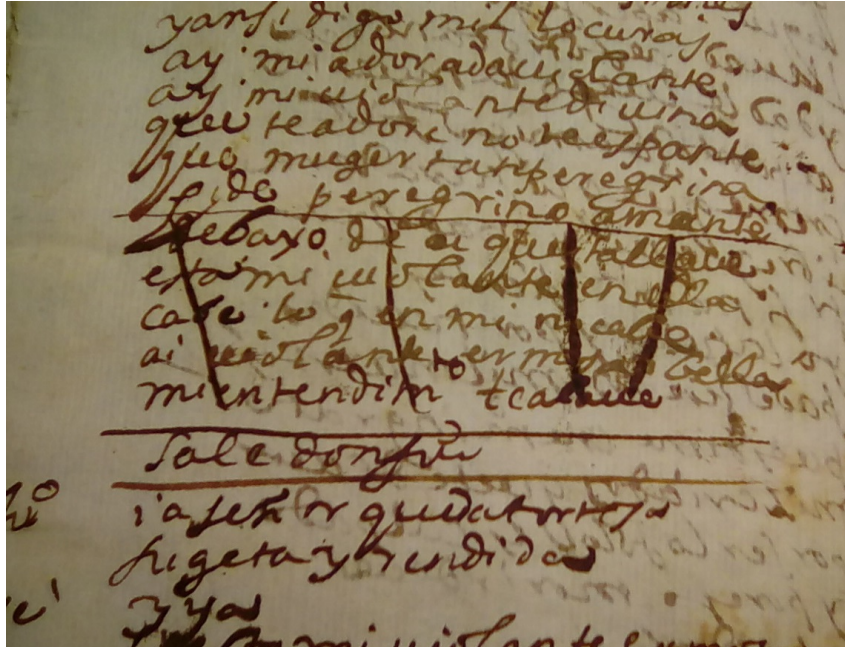 yansi digo mil locuras
ay mi adorada violante
ay mi violante diuina
que teadore no teespante
que muger tan peregrina
pide peregrino amante
debaxo de a
esta mi violante enella
cabe lo q en mi no cabe
ai violante ermosa i bella
mientendimto
sale don
ia señor queda tortosa
sugeta y rendida
y ya
mi violante